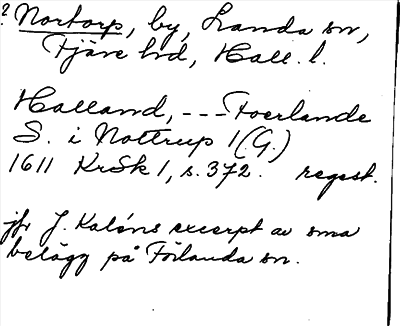 ? Nortorp, by, Landa sn,
Fjäre hd, Hall. l.
Halland, --- Foerlande
S. i Nottrup 1 (G.)
1611 KrSk 1, s. 372. regest.
jfr J. Kaléns excerpt av sma
belägg på Förlanda sn.